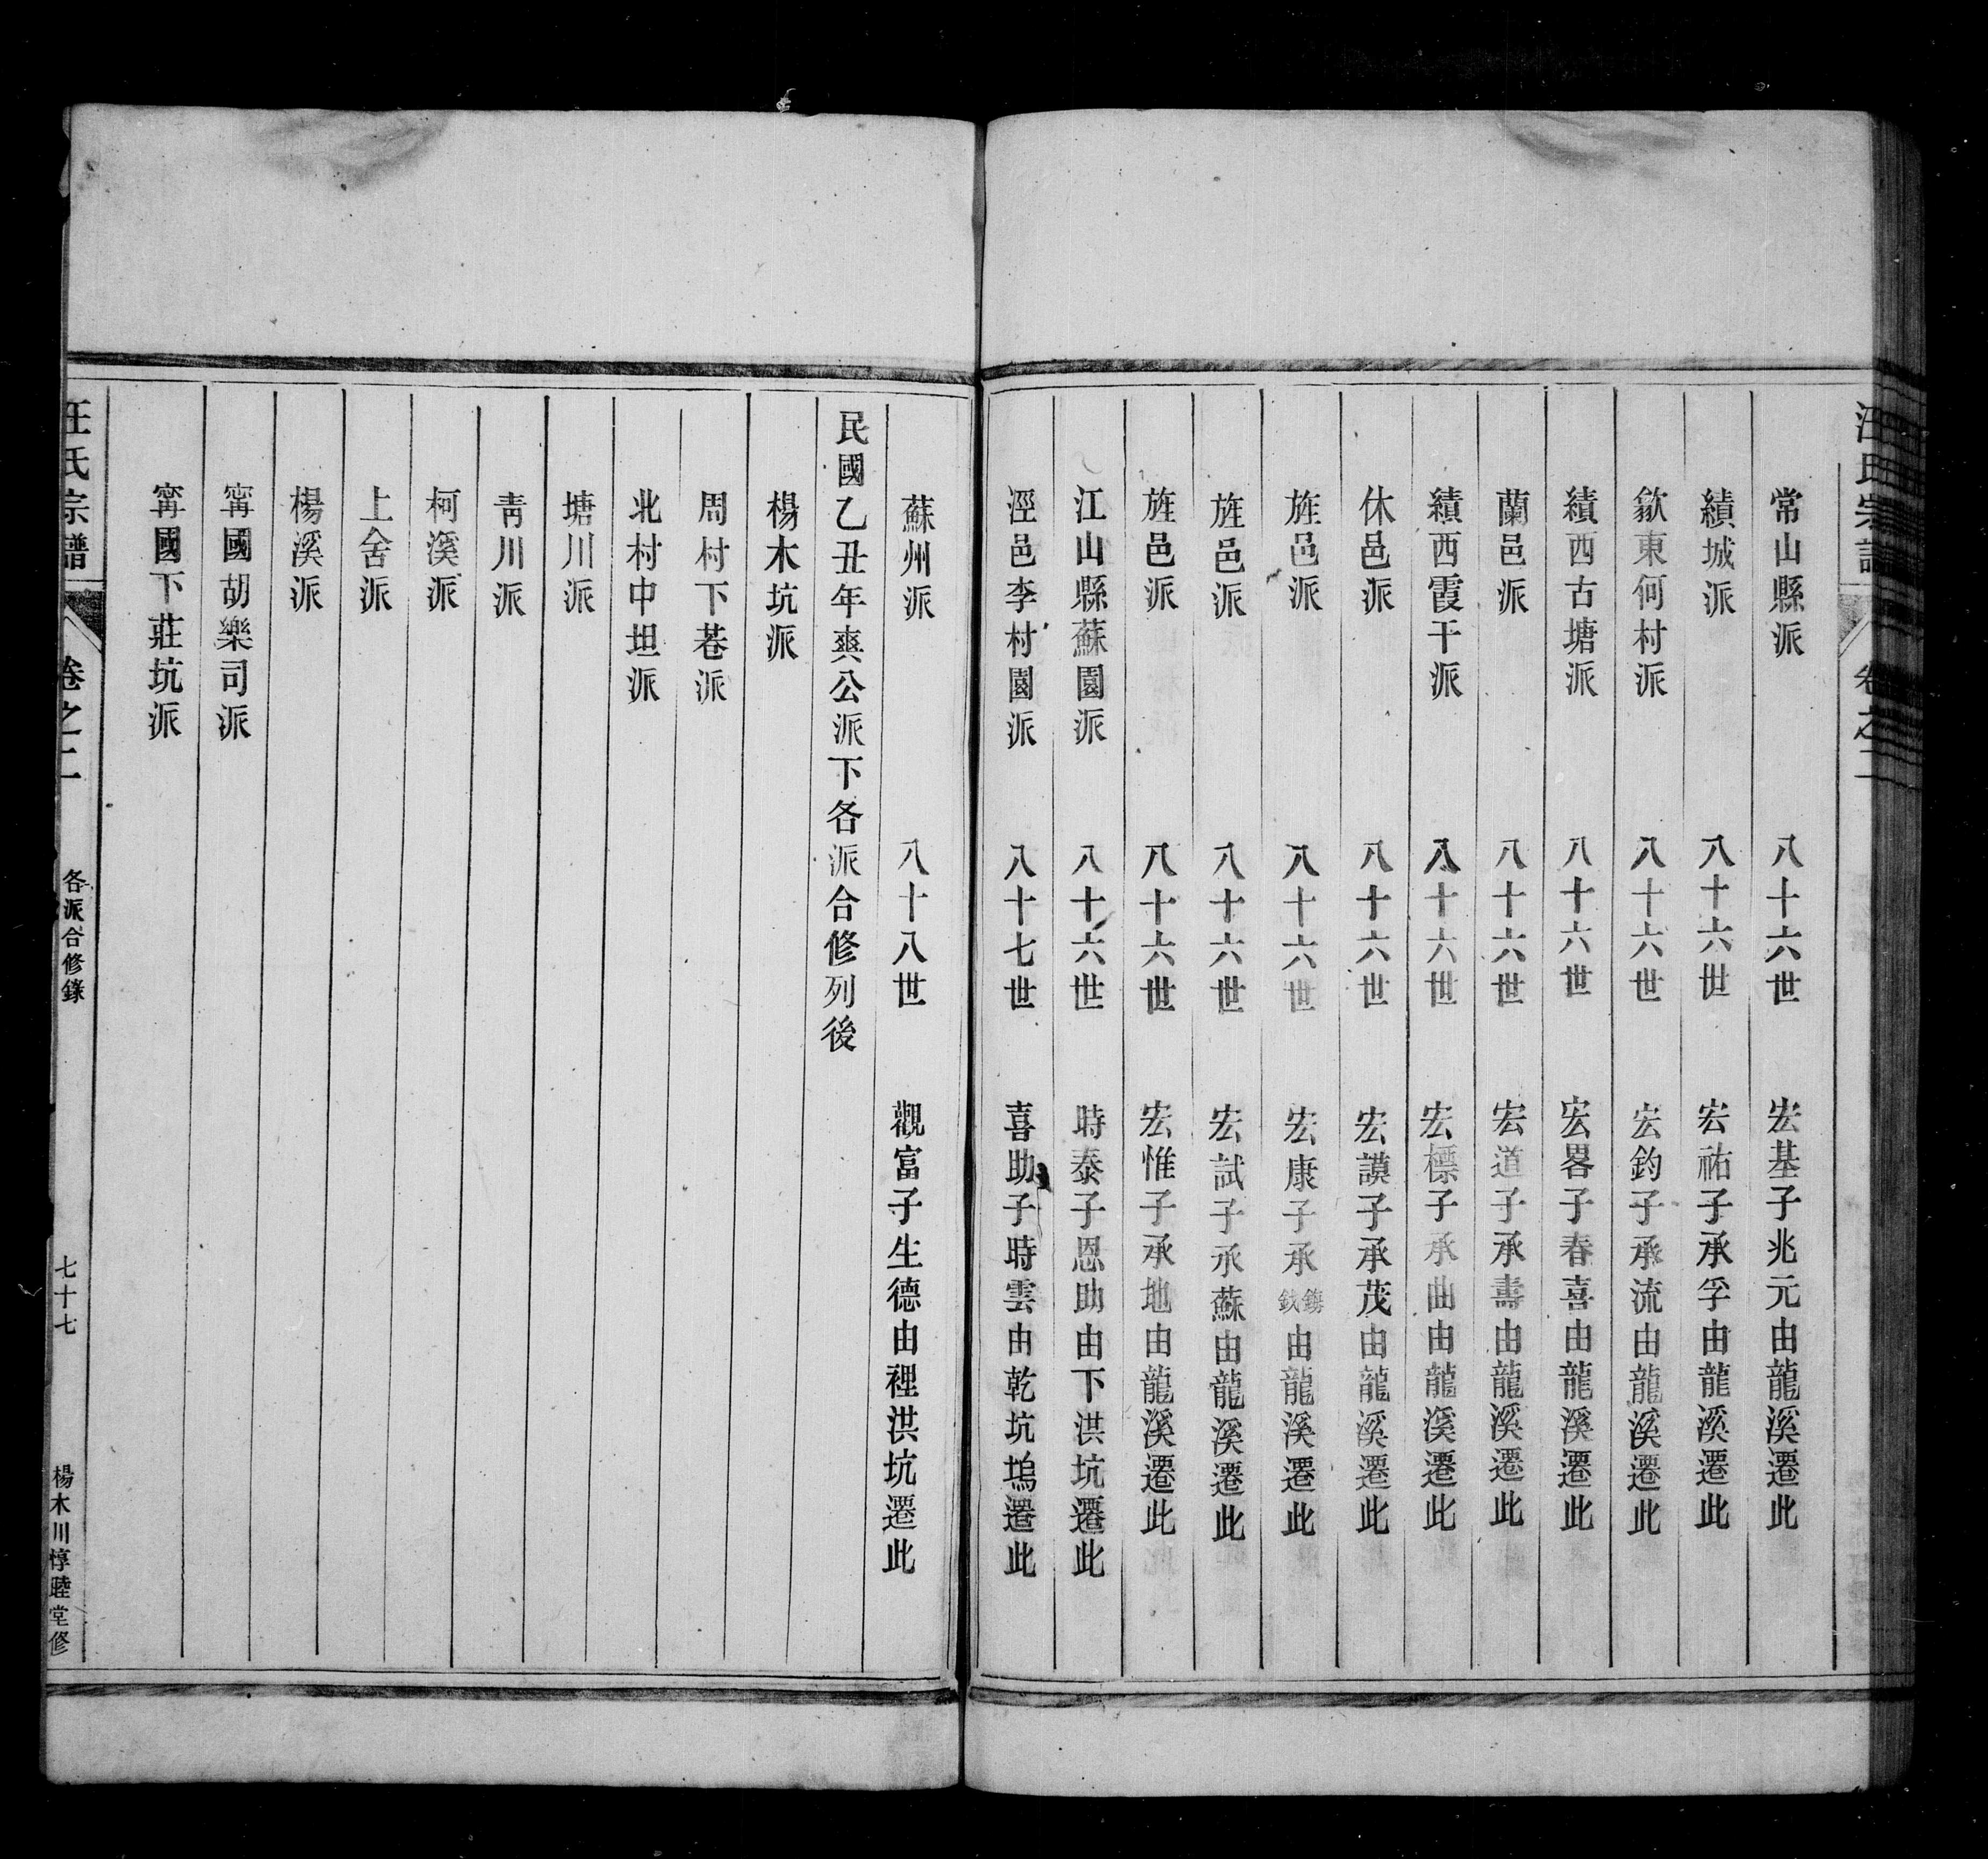 汪氏宗譜 卷之二
常山縣派 八十六世 宏基子兆元由龍溪遷此
績城派 八十六世 宏祐子承孚由龍溪遷此
歙東何村派 八十六世 宏鈞子承流由龍溪遷此
績西古塘派 八十六世 宏畧子春喜由龍溪遷此
蘭邑派 八十六世 宏道子承壽由龍溪遷此
績西霞干派 八十六世 宏標子承曲由龍溪遷此
休邑派 八十六世 宏謨子承茂由龍溪遷此
旌邑派 八十六世 宏康子承由龍溪遷此
旌邑派 八十六世 宏試子承蘇由龍溪遷此
旌邑派 八十六世 宏惟子承地由龍溪遷此
江山縣蘇園派 八十六世 時泰子恩助由下洪坑遷此
涇邑李村園派 八十七世 喜助子時雲由乾坑塢遷此
蘇州派 八十八世 觀富子生德由裡洪坑遷此
民國乙丑年爽公派下各派合修列後
楊木坑派
周村下巷派
北村中坦派
塘川派
青川派
柯溪派
上舍派
楊溪派
甯國胡樂司派
甯國下莊坑派
汪氏宗譜 卷之二 各派合修錄 七十七 楊木川惇睦堂修